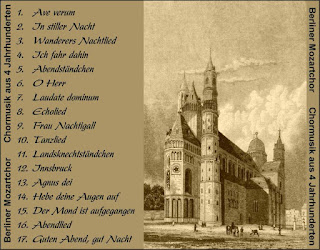 Berliner Mozartchor Chormusik aus 4 Jahrhunderten
1. Ave verum
2. In stiller Nacht
3. Wanderers Nachtlied
4. Ich fahr dahin
5. Abendständchen
6. O Herr
7. Laudate dominum
8. Echolied
9. Frau Nachtigall
10. Tanzlied
11. Landsknechtständchen
12. Innsbruck
13. Agnus dei
14. Hebe deine Augen auf
15. Der Mond ist aufgegangen
16. Abendlied
17. Guten Abend, gut Nacht
Berliner Mozartchor Chormusik aus 4 Jahrhunderten